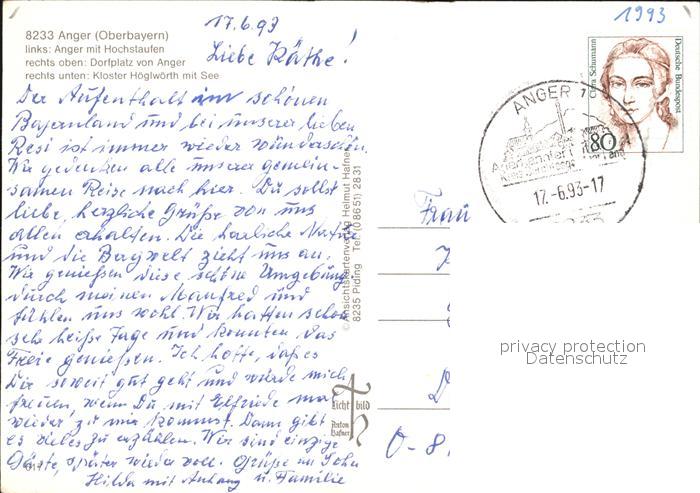 17.6.93
1993
8233 Anger (Oberbayern)
links: Anger mit Hochstaufen
rechts oben: Dorfplatz von Anger
rechts unten: Kloster Höglwörth mit See
Liebe Käthe!
Der Aufenthalt im schönen
Bayernland und bei unserer lieben
Resi ist immer wieder wunderschön.
Wir gedenken alle unserer gemein-
samen Reise nach hier. Du sollst
liebe, herzliche Grüße von uns
allen erhalten. Die herrliche Natur
und die Bergwelt zieht uns an.
Wir genießen diese schöne Umgebung
durch meinen Manfred und
fühlen uns wohl. Wir hatten schon
sehr heiße Tage und konnten das
Freie genießen. Ich hoffe, daß es
Dir soweit gut geht und würde mich
freuen, wenn Du mit Elfriede mal
wieder zu mir kommst. Dann gibt
es vieles zu erzählen. Wir sind einzige
Gäste, später wieder voll. Grüße an
Hilda mit Anhang u. Familie
© Ansichtskartenverlag Helmut Hafner
8235 Piding Tel. (0 86 51) 28 31
Licht bild
Anton Hafner
Clara Schumann
Deutsche Bundespost
80
ANGER 1
17.-6.93-17
8233
Frau
D
O-8.
privacy protection
Datenschutz